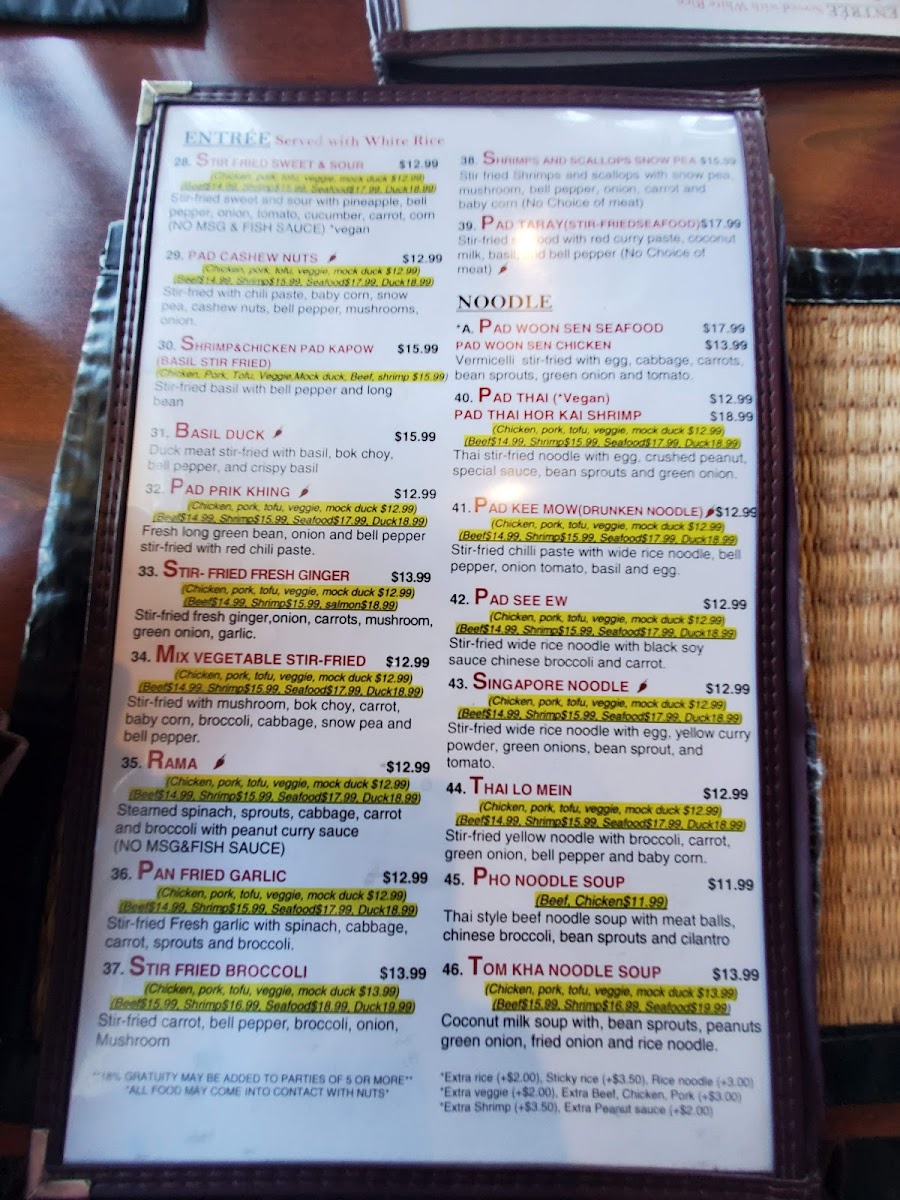 ENTRÉE Served with White Rice
28. STIR FRIED SWEET & SOUR $12.99
(Chicken, pork, tofu, veggie, mock duck $12.99)
(Beef$14.99, Shrimp$15.99, Seafood$17.99, Duck18.99)
Stir-fried sweet and sour with pineapple, bell
pepper, onion, tomato, cucumber, carrot, corn
(NO MSG & FISH SAUCE) *vegan
29. PAD CASHEW NUTS $12.99
(Chicken, pork, tofu, veggie, mock duck $12.99)
(Beef$14.99, Shrimp$15.99, Seafood$17.99, Duck18.99)
Stir-fried with chili paste, baby corn, snow
pea, cashew nuts, bell pepper, mushrooms,
onion.
30. SHRIMP&CHICKEN PAD KAPOW $15.99
(BASIL STIR FRIED)
(Chicken, Pork, Tofu, Veggie,Mock duck, Beef, shrimp $15.99)
Stir-fried basil with bell pepper and long
bean
31. BASIL DUCK $15.99
Duck meat stir-fried with basil, bok choy,
bell pepper, and crispy basil
32. PAD PRIK KHING $12.99
(Chicken, pork, tofu, veggie, mock duck $12.99)
(Beef$14.99, Shrimp$15.99, Seafood$17.99, Duck18.99)
Fresh long green bean, onion and bell pepper
stir-fried with red chili paste.
33. STIR- FRIED FRESH GINGER $13.99
(Chicken, pork, tofu, veggie, mock duck $12.99)
(Beef$14.99, Shrimp$15.99, salmon$18.99)
Stir-fried fresh ginger,onion, carrots, mushroom,
green onion, garlic.
34. MIX VEGETABLE STIR-FRIED $12.99
(Chicken, pork, tofu, veggie, mock duck $12.99)
(Beef$14.99, Shrimp$15.99, Seafood$17.99, Duck18.99)
Stir-fried with mushroom, bok choy, carrot,
baby corn, broccoli, cabbage, snow pea and
bell pepper.
35. RAMA $12.99
(Chicken, pork, tofu, veggie, mock duck $12.99)
(Beef$14.99, Shrimp$15.99, Seafood$17.99, Duck18.99)
Steamed spinach, sprouts, cabbage, carrot
and broccoli with peanut curry sauce
(NO MSG&FISH SAUCE)
36. PAN FRIED GARLIC $12.99
(Chicken, pork, tofu, veggie, mock duck $12.99)
(Beef$14.99, Shrimp$15.99, Seafood$17.99, Duck18.99)
Stir-fried Fresh garlic with spinach, cabbage,
carrot, sprouts and broccoli.
37. STIR FRIED BROCCOLI $13.99
(Chicken, pork, tofu, veggie, mock duck $13.99)
(Beef$15.99, Shrimp$16.99, Seafood$18.99, Duck19.99)
Stir-fried carrot, bell pepper, broccoli, onion,
Mushroom
**18% GRATUITY MAY BE ADDED TO PARTIES OF 5 OR MORE**
*ALL FOOD MAY COME INTO CONTACT WITH NUTS*
38. SHRIMPS AND SCALLOPS SNOW PEA $15.99
Stir fried Shrimps and scallops with snow pea,
mushroom, bell pepper, onion, carrot and
baby corn (No Choice of meat)
39. PAD TARAY(STIR-FRIEDSEAFOOD)$17.99
Stir-fried seafood with red curry paste, coconut
milk, basil, and bell pepper (No Choice of
meat)
NOODLE
*A. PAD WOON SEN SEAFOOD $17.99
PAD WOON SEN CHICKEN $13.99
Vermicelli stir-fried with egg, cabbage, carrots,
bean sprouts, green onion and tomato.
40. PAD THAI (*Vegan) $12.99
PAD THAI HOR KAI SHRIMP $18.99
(Chicken, pork, tofu, veggie, mock duck $12.99)
(Beef$14.99, Shrimp$15.99, Seafood$17.99, Duck18.99)
Thai stir-fried noodle with egg, crushed peanut,
special sauce, bean sprouts and green onion.
41. PAD KEE MOW(DRUNKEN NOODLE) $12.99
(Chicken, pork, tofu, veggie, mock duck $12.99)
(Beef$14.99, Shrimp$15.99, Seafood$17.99, Duck18.99)
Stir-fried chilli paste with wide rice noodle, bell
pepper, onion tomato, basil and egg.
42. PAD SEE EW $12.99
(Chicken, pork, tofu, veggie, mock duck $12.99)
(Beef$14.99, Shrimp$15.99, Seafood$17.99, Duck18.99)
Stir-fried wide rice noodle with black soy
sauce chinese broccoli and carrot.
43. SINGAPORE NOODLE $12.99
(Chicken, pork, tofu, veggie, mock duck $12.99)
(Beef$14.99, Shrimp$15.99, Seafood$17.99, Duck18.99)
Stir-fried wide rice noodle with egg, yellow curry
powder, green onions, bean sprout, and
tomato.
44. THAI LO MEIN $12.99
(Chicken, pork, tofu, veggie, mock duck $12.99)
(Beef$14.99, Shrimp$15.99, Seafood$17.99, Duck18.99)
Stir-fried yellow noodle with broccoli, carrot,
green onion, bell pepper and baby corn.
45. PHO NOODLE SOUP $11.99
(Beef, Chicken$11.99)
Thai style beef noodle soup with meat balls,
chinese broccoli, bean sprouts and cilantro
46. TOM KHA NOODLE SOUP $13.99
(Chicken, pork, tofu, veggie, mock duck $13.99)
(Beef$15.99, Shrimp$16.99, Seafood$19.99)
Coconut milk soup with, bean sprouts, peanuts
green onion, fried onion and rice noodle.
*Extra rice (+$2.00), Sticky rice (+$3.50), Rice noodle (+3.00)
*Extra veggie (+$2.00), Extra Beef, Chicken, Pork (+$3.00)
*Extra Shrimp (+$3.50), Extra Peanut sauce (+$2.00)
ENTRÉE Served with White Rice